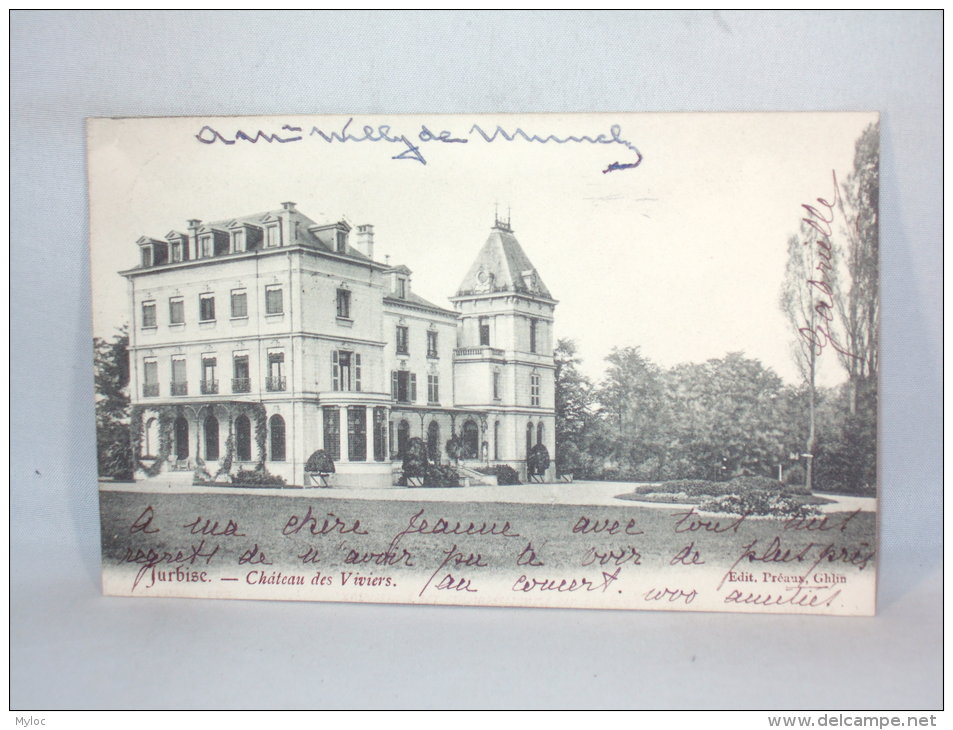 A Mr Willy de Munck
Gabrielle
A ma chère Jeanne avec tout du
regrett de n'avoir pu te voir de plus près
Jurbise. — Château des Viviers.
au concert. 1000 amitiés
Edit. Préaux, Ghlin
Myloc
http://www.delcampe.net